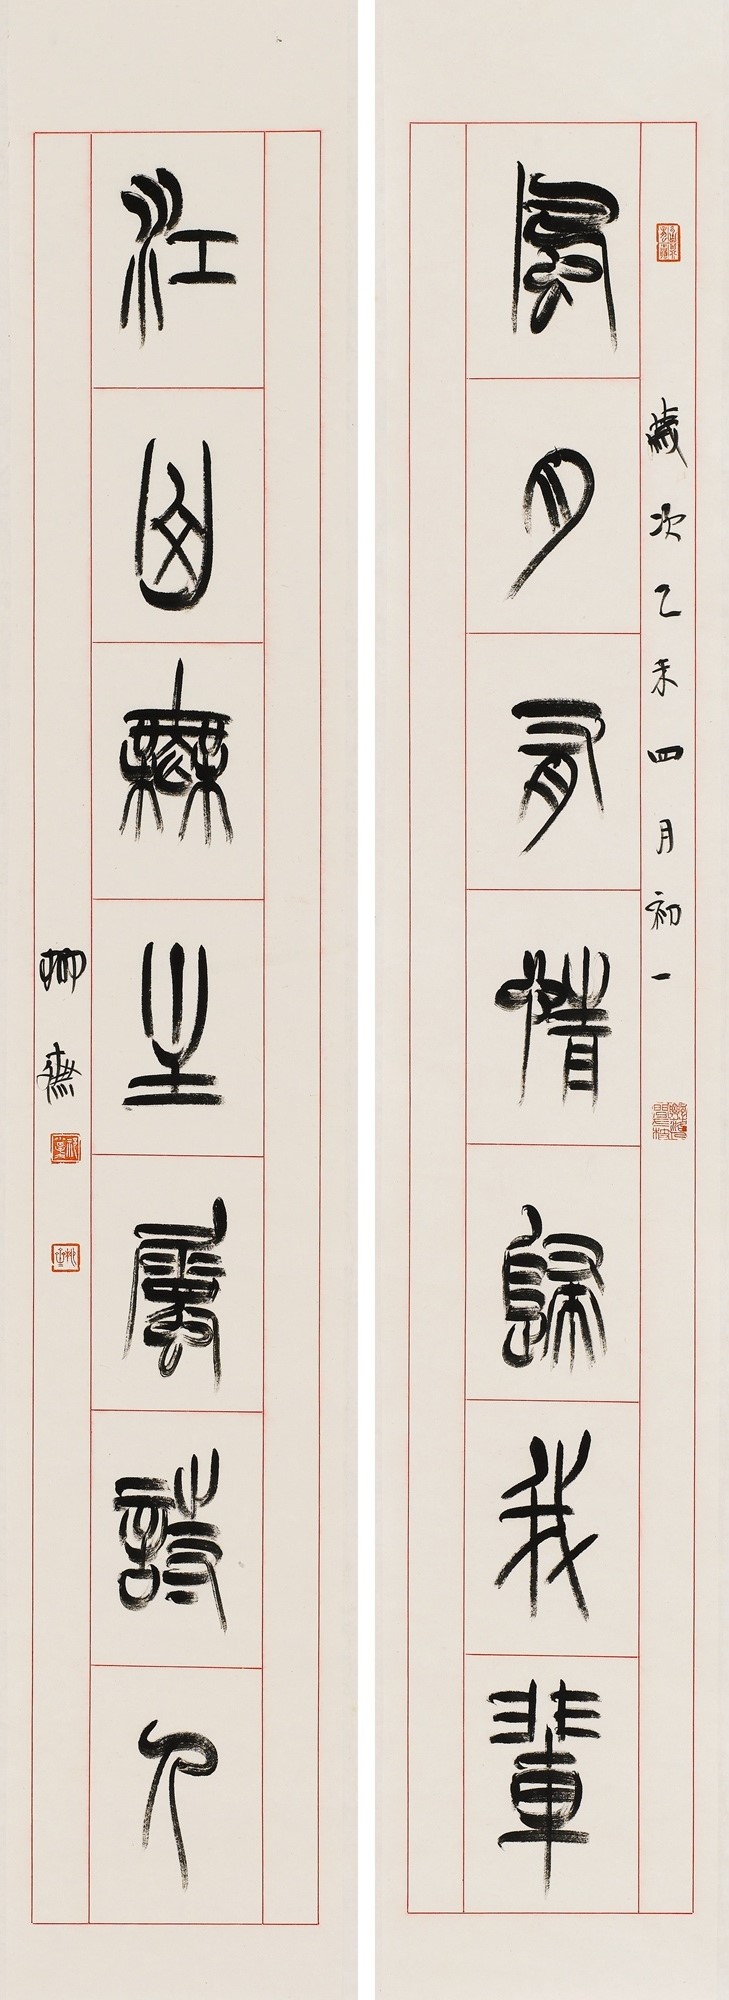 風月有情歸我輩
歲次乙未四月初一
江山無主屬詩人